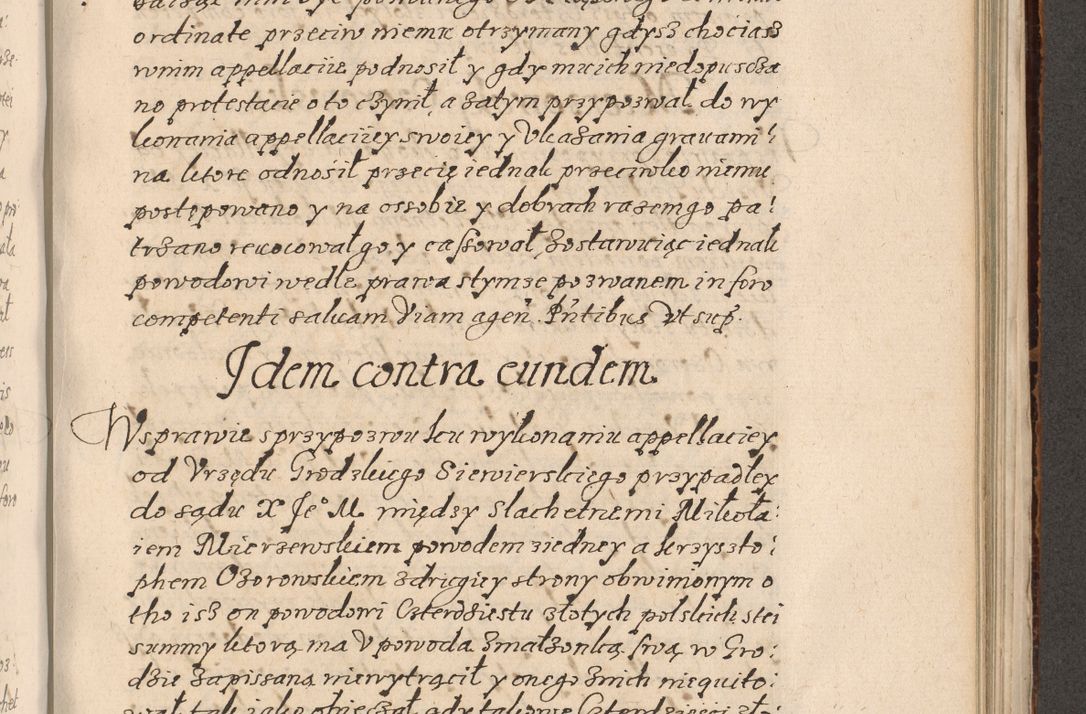 ordinate przeciw niemu otrzymany gdysz chociasz
wnim appellacije podnosił y gdy mu ich niedopuscza
no protestacie o to czynił, a zatym przypozwał do wy
konania appellaciiey swoiey y Vkazania grauami:
na ktore odnosił przecię iednak przeciwko niemu
postępowano y na ossobie y dobrach razem go pa:
trzano reuocował go y cassował, zostawuiąc iednak
powodowi wedle prawa stymze pozwanem in foro
competenti saluam Viam agen. Pntibus Vt sup.
Idem contra eundem
Wsprawie sprzypozwu ku wykonaniu appellaciey
od Vrzędu Grodzkiego Siewierskiego przypadłey
do sądu X Je° M między Slachetnemi Mikoła:
iem Mierzewskiem powodem ziedney a krzyszto:
phem Ozorowskiem zdrugiey strony obwinionym o
tho isz on powodowi Czterdziestu złotych polskich stei
summy ktorą ma V powoda zmałzonką swą w Gro:
dzie zapissaną niewytrącił y onego znich niequito: